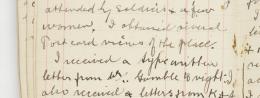 attended by soldiers & a few
women. I obtained several
Post card views of the place.
I received a typewritten
letter from Mr. Gumble tonight. I
also received a letters from